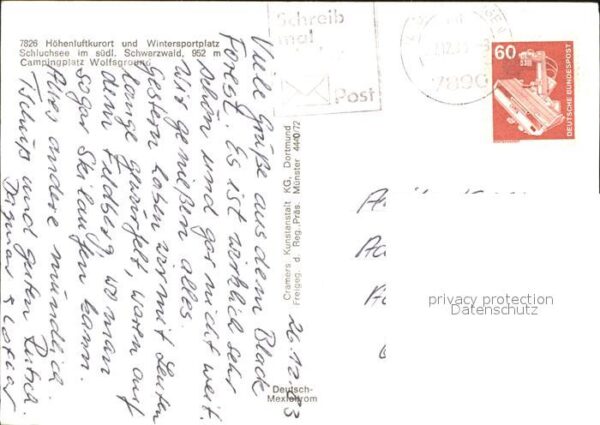 7826 Höhenluftkurort und Wintersportplatz
Schluchsee im südl. Schwarzwald, 952 m
Campingplatz Wolfsgrund
Schreib
mal
Post
7890
60
DEUTSCHE BUNDESPOST
Viele Grüße aus dem Black
Forest. Es ist wirklich sehr
schön und gar nicht weit.
Wir genießen alles.
Gestern haben wir mit Leuten
lange gewürfelt, waren auf
dem Feldberg, wo man
sogar Skilaufen kann.
Alles andere mündlich.
Tschüß und guten Rutsch.
Dagmar +
26.12.83
Cramers Kunstanstalt KG, Dortmund
Freigeg. d. Reg. Präs. Münster 4440/72
Deutsch-
privacy protection
Datenschutz